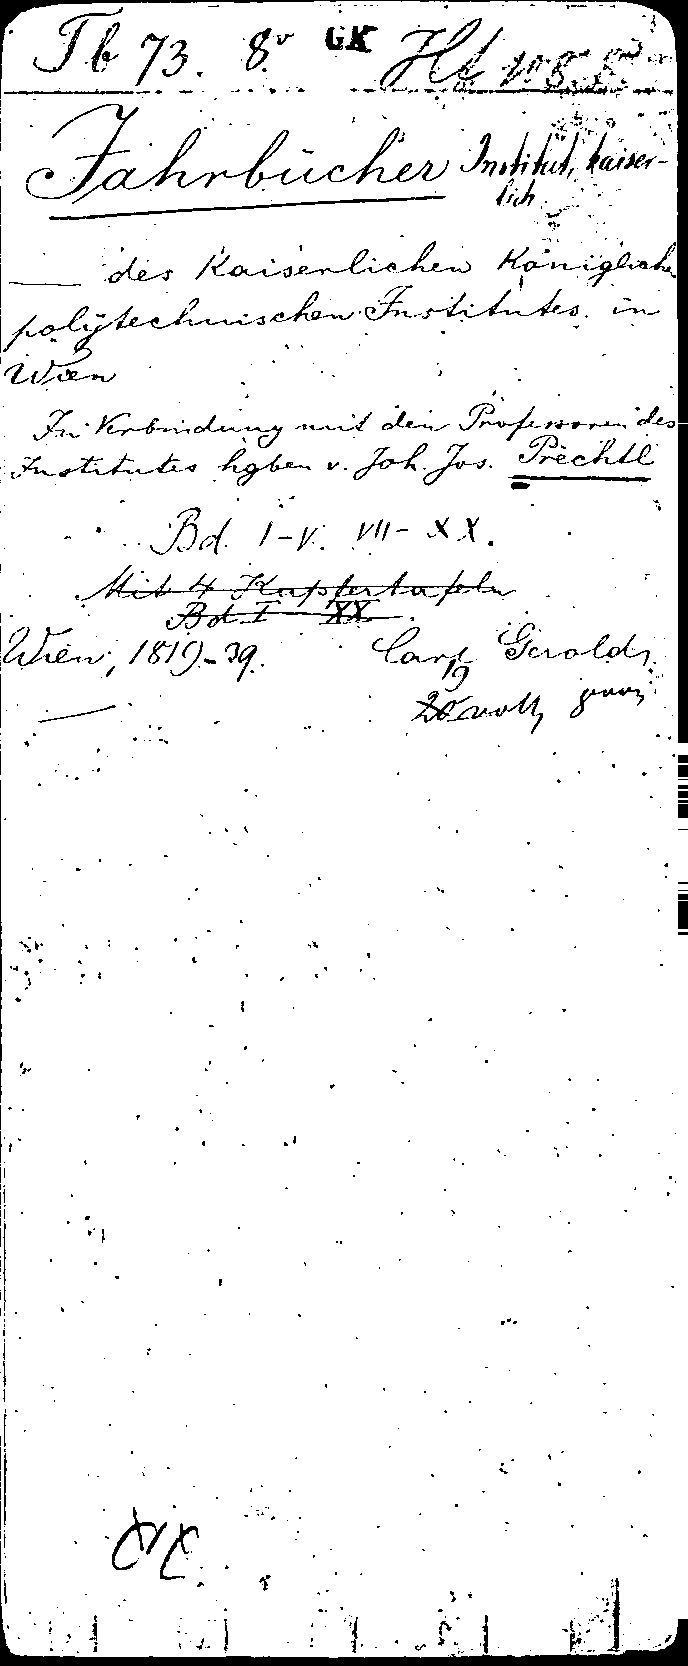 Tb 73. 8° GK Ht 108. 8°
Jahrbücher Institut, kaiser-
lich
— des Kaiserlichen Königlichen
polytechnischen Institutes in
Wien
In Verbindung mit den Professoren des
Institutes hgben v. Joh. Jos. Prechtl
Bd. I-V. VII-XX.
Mit 4 Kupfertafeln
Bd I - XX.
Wien, 1819-39. Carl Gerold
19
20 voll